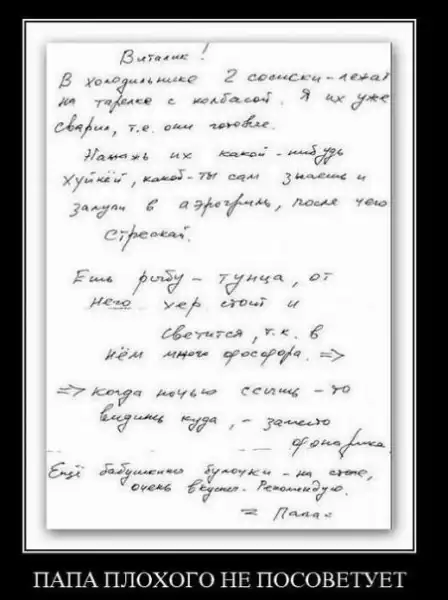 Виталик!
В холодильнике 2 сосиски - лежат
на тарелке с колбасой. Я их уже
сварил, т.е. они готовые.
Намажь их какой-нибудь
хуйнёй, какой - ты сам знаешь и
запули в аэрогриль, после чего
стрескай.
Ешь рыбу - тунца, от
него хер стоит и
светится, т.к. в
нём много фосфора. =>
=> когда ночью ссышь - то
видишь куда, - заместо
фонарика.
Ещё бабушкины булочки - на столе,
очень вкусно. Рекомендую.
Папа
ПАПА ПЛОХОГО НЕ ПОСОВЕТУЕТ